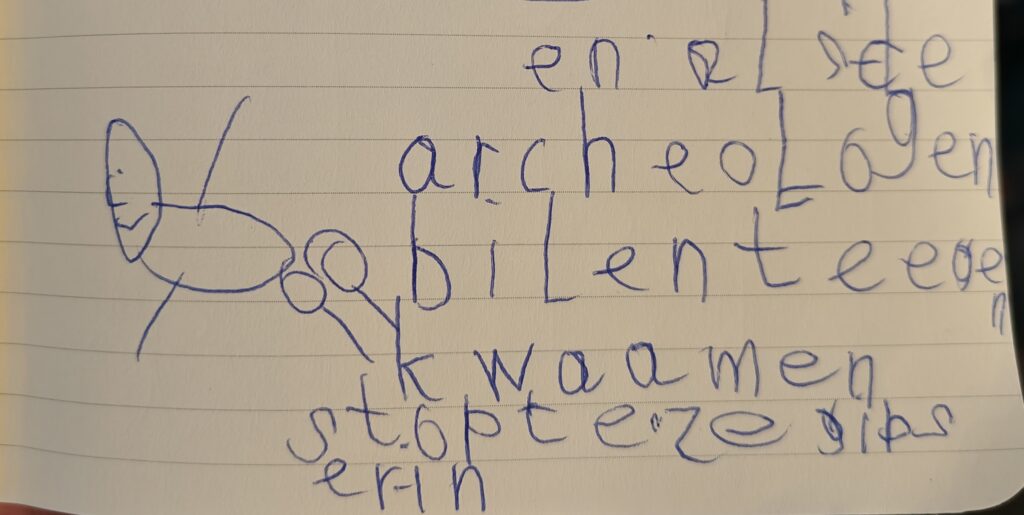 en al die
archeologen
bilen teegen
kwaamen
stopte ze gips
er in